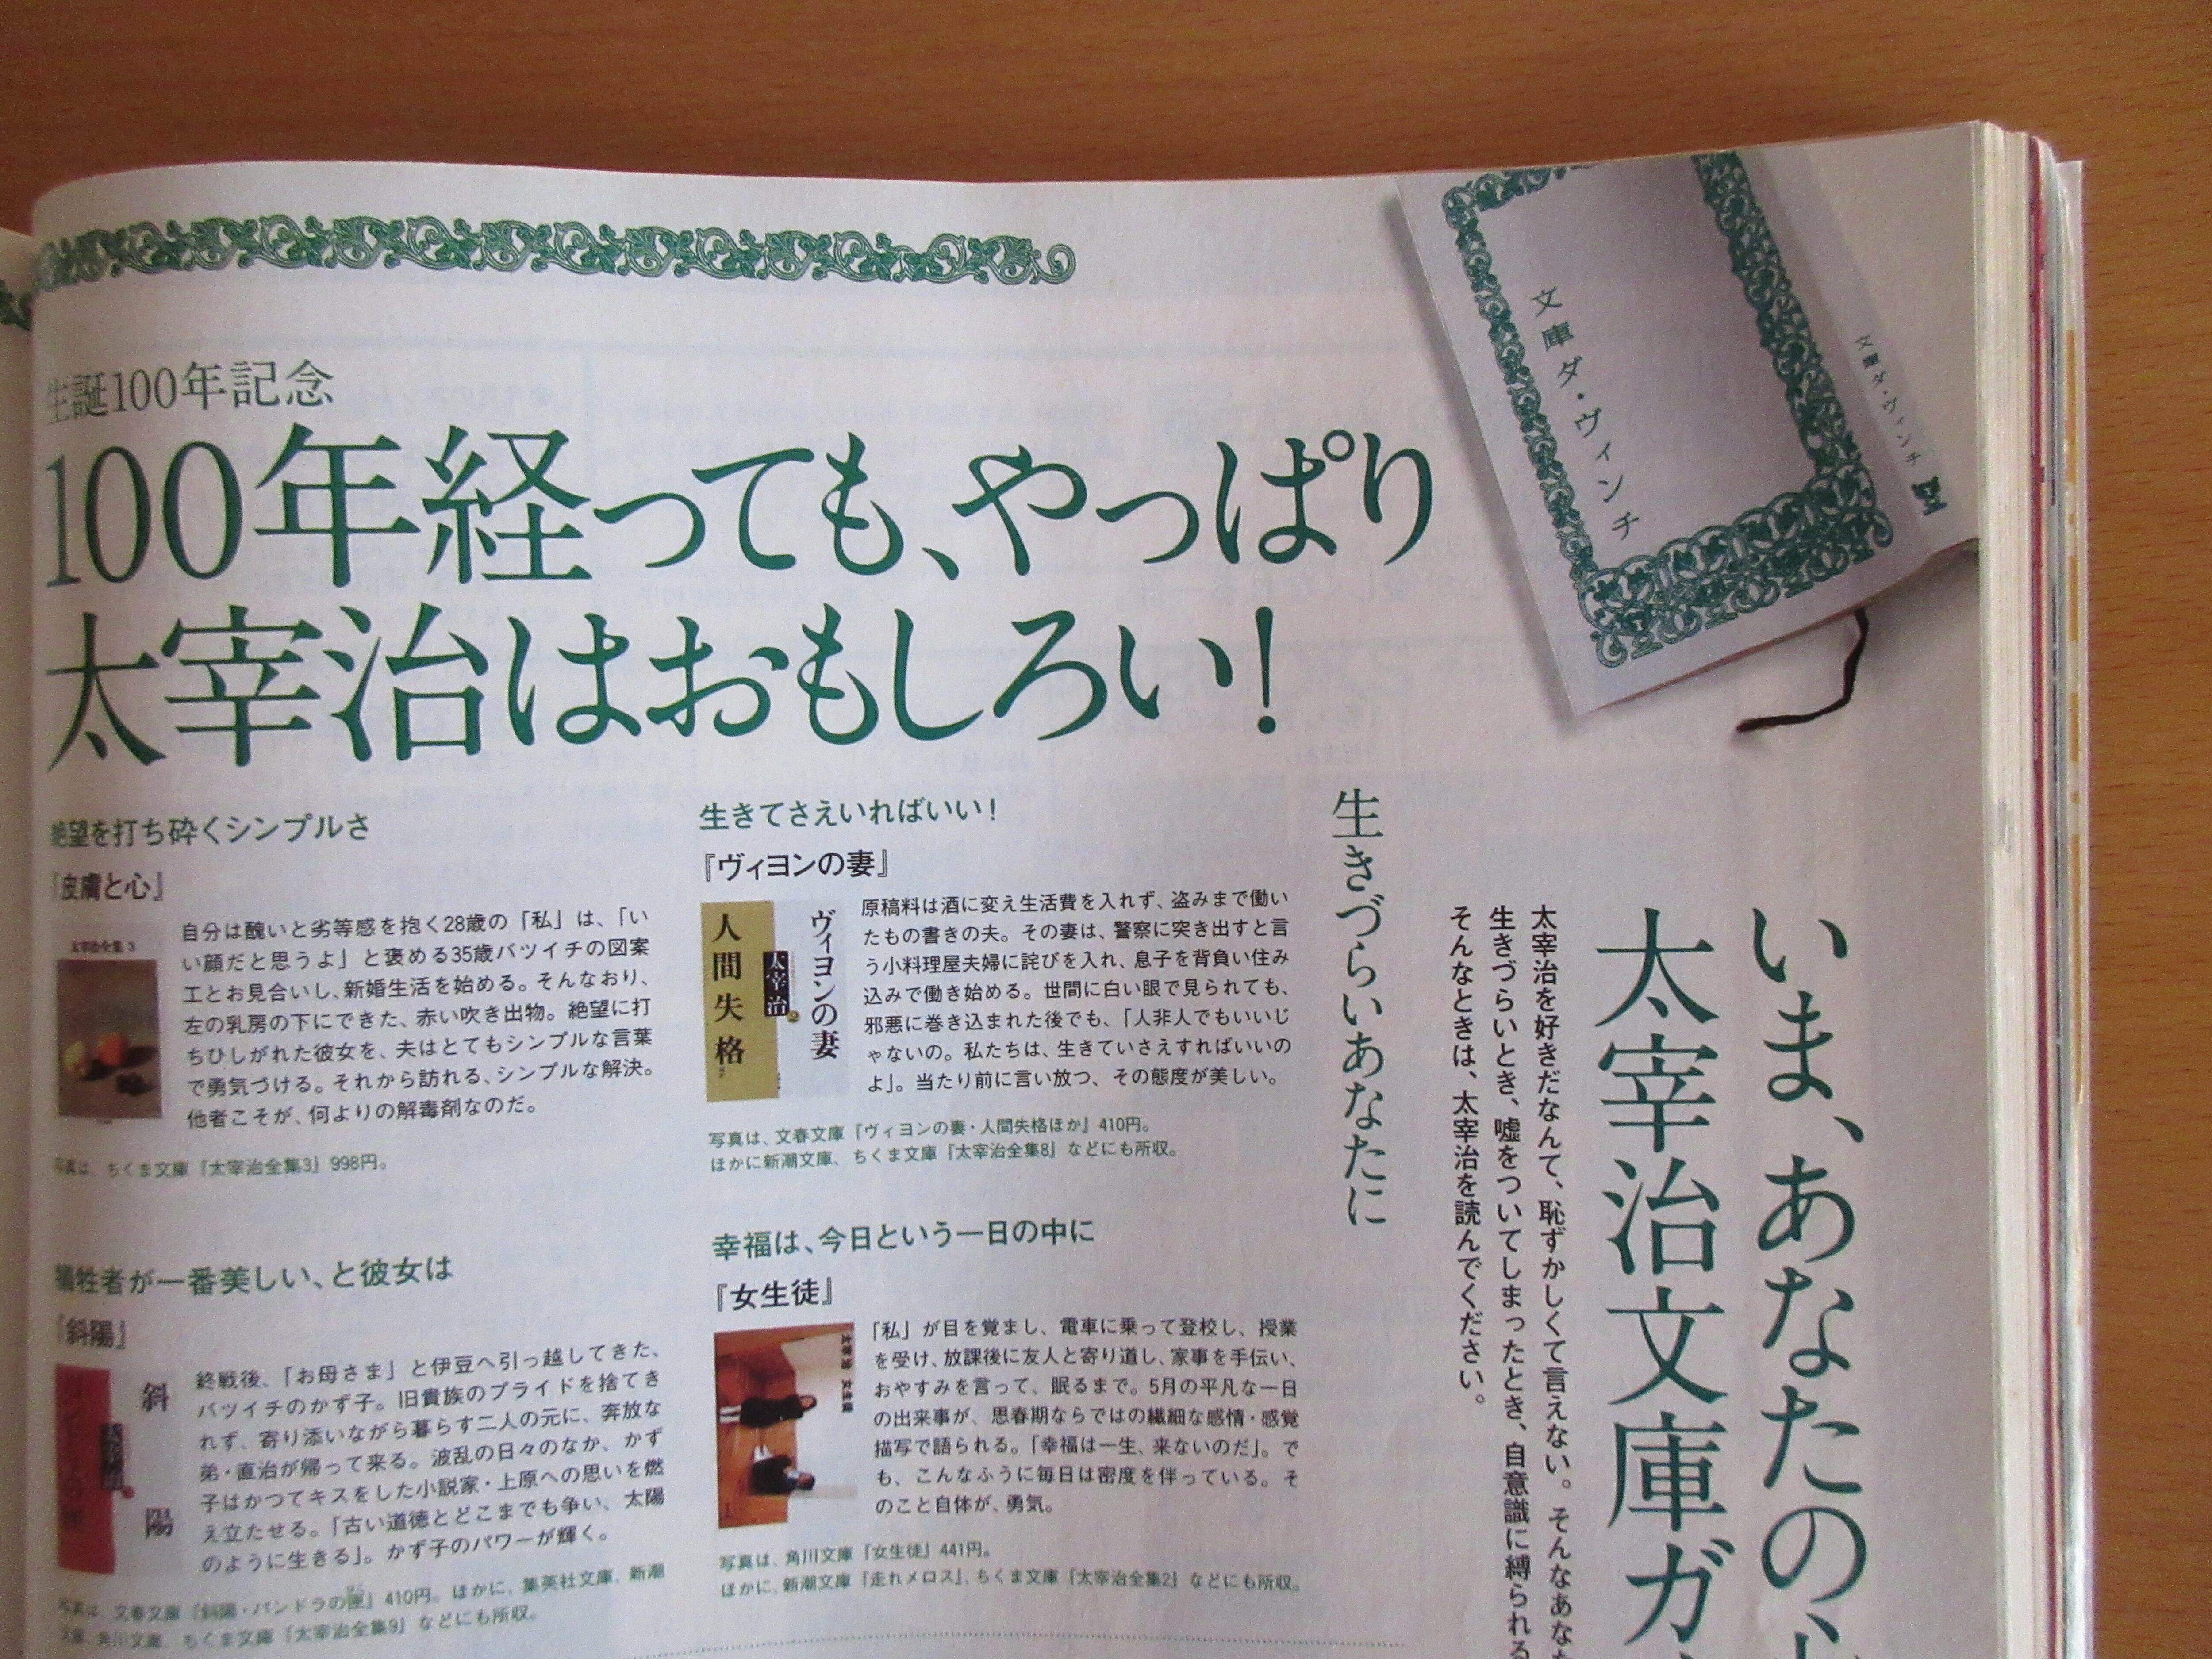 生誕100年記念
100年経っても、やっぱり
太宰治はおもしろい！
文庫ダ・ヴィンチ
文庫ダ・ヴィンチ
いま、あなたの
太宰治文庫ガ
太宰治を好きだなんて、恥ずかしくて言えない。そんなあなた
生きづらいとき、嘘をついてしまったとき、自意識に縛られる
そんなときは、太宰治を読んでください。
生きづらいあなたに
生きてさえいればいい！
『ヴィヨンの妻』
ヴィヨンの妻
太宰治
人間失格
原稿料は酒に変え生活費を入れず、盗みまで働い
たもの書きの夫。その妻は、警察に突き出すと言
う小料理屋夫婦に詫びを入れ、息子を背負い住み
込みで働き始める。世間に白い眼で見られても、
邪悪に巻き込まれた後でも、「人非人でもいいじ
ゃないの。私たちは、生きていさえすればいいの
よ」。当たり前に言い放つ、その態度が美しい。
写真は、文春文庫『ヴィヨンの妻・人間失格ほか』410円。
ほかに新潮文庫、ちくま文庫『太宰治全集8』などにも所収。
幸福は、今日という一日の中に
『女生徒』
太宰治 女生徒
「私」が目を覚まし、電車に乗って登校し、授業
を受け、放課後に友人と寄り道し、家事を手伝い、
おやすみを言って、眠るまで。5月の平凡な一日
の出来事が、思春期ならではの繊細な感情・感覚
描写で語られる。「幸福は一生、来ないのだ」。で
も、こんなふうに毎日は密度を伴っている。そ
のこと自体が、勇気。
写真は、角川文庫『女生徒』441円。
ほかに、新潮文庫『走れメロス』、ちくま文庫『太宰治全集2』などにも所収。
絶望を打ち砕くシンプルさ
『皮膚と心』
太宰治全集 3
自分は醜いと劣等感を抱く28歳の「私」は、「い
い顔だと思うよ」と褒める35歳バツイチの図案
工とお見合いし、新婚生活を始める。そんなおり、
左の乳房の下にできた、赤い吹き出物。絶望に打
ちひしがれた彼女を、夫はとてもシンプルな言葉
で勇気づける。それから訪れる、シンプルな解決。
他者こそが、何よりの解毒剤なのだ。
写真は、ちくま文庫『太宰治全集3』998円。
犠牲者が一番美しい、と彼女は
『斜陽』
斜陽
終戦後、「お母さま」と伊豆へ引っ越してきた、
バツイチのかず子。旧貴族のプライドを捨てき
れず、寄り添いながら暮らす二人の元に、奔放な
弟・直治が帰って来る。波乱の日々のなか、かず
子はかつてキスをした小説家・上原への思いを燃
え立たせる。「古い道徳とどこまでも争い、太陽
のように生きる」。かず子のパワーが輝く。
写真は、文春文庫『斜陽・パンドラの匣』410円。ほかに、集英社文庫、新潮
文庫、角川文庫、ちくま文庫『太宰治全集9』などにも所収。